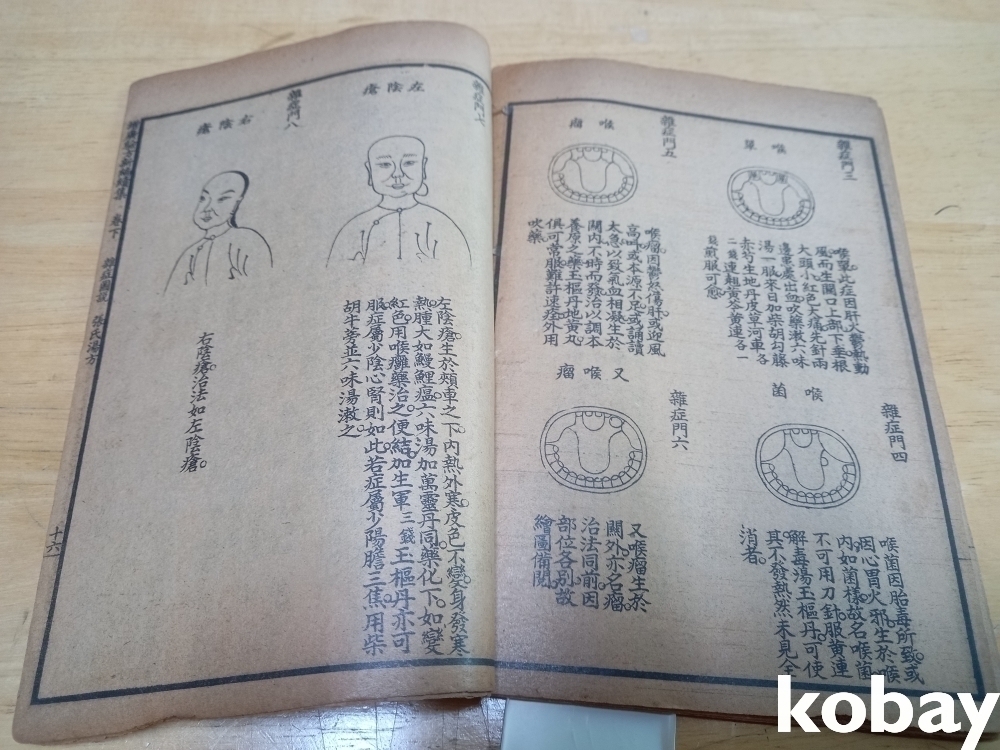 雜症門三
喉單
喉單此症因肝火鬱熱動
風而生關口上部下垂根
大頭小紅色大痛先針兩
邊患處出血吹藥漱六味
湯一服來日加柴胡勾藤
赤芍生地丹皮草河車各
二錢連翹黃芩黃連各一
錢煎服可愈
雜症門四
喉菌
喉菌因胎毒所致或
因心胃火邪生於喉
內如菌樣故名喉菌
不可用刀針服黃連
解毒湯玉樞丹可使
其不發熱然未見全
消者
雜症門五
喉瘤
喉瘤因鬱怒傷肝或迎風
高叫或本源不足或誦讀
太急以致氣血相凝生於
關內不時而發治以調本
養原之藥玉樞丹地黃丸
俱可常服難許速痊外用
吹藥
雜症門六
又喉瘤
又喉瘤生於
關外亦名瘤
治法同前因
部位各別故
繪圖備閱
雜症門七
左陰瘡
左陰瘡生於頰車之下內熱外寒皮色不變身發寒
熱腫大如鰻鯉瘟六味湯加萬靈丹同藥化下如變
紅色用喉癰藥治之便結加生軍三錢玉樞丹亦可
服症屬少陰心腎則如此若症屬少陽膽三焦用柴
胡牛蒡並六味湯漱之
雜症門八
右陰瘡
右陰瘡治法如左陰瘡
卷下 雜症圖說
十六
kobay